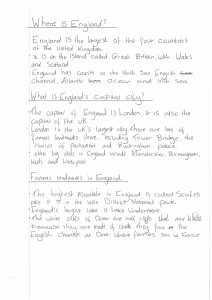 Where is England?
England is the largest of the four countries
of the United Kingdom.
It is on the island called Great Britain with Wales
and Scotland
England has coasts on the North Sea, English
Channel, Atlantic Ocean and Irish Sea.
What is England's Capital City?
The capital of England is London. It is also the
capital of the UK.
London is the UK's largest city, there are lots of
famous landmarks there including Tower Bridge, the
Houses of Parliament and Buckingham palace.
Other big cities in England include Manchester, Birmingham,
Leeds and Liverpool.
Famous landmarks in England
The highest Mountain in England is called Scafell
Pike it is in the Lake District National park.
England's largest lake is Lake Windermere
The white cliffs of Dover are cliffs that are white
because they are made of chalk they face the
English channel at Dover, where ferries to France